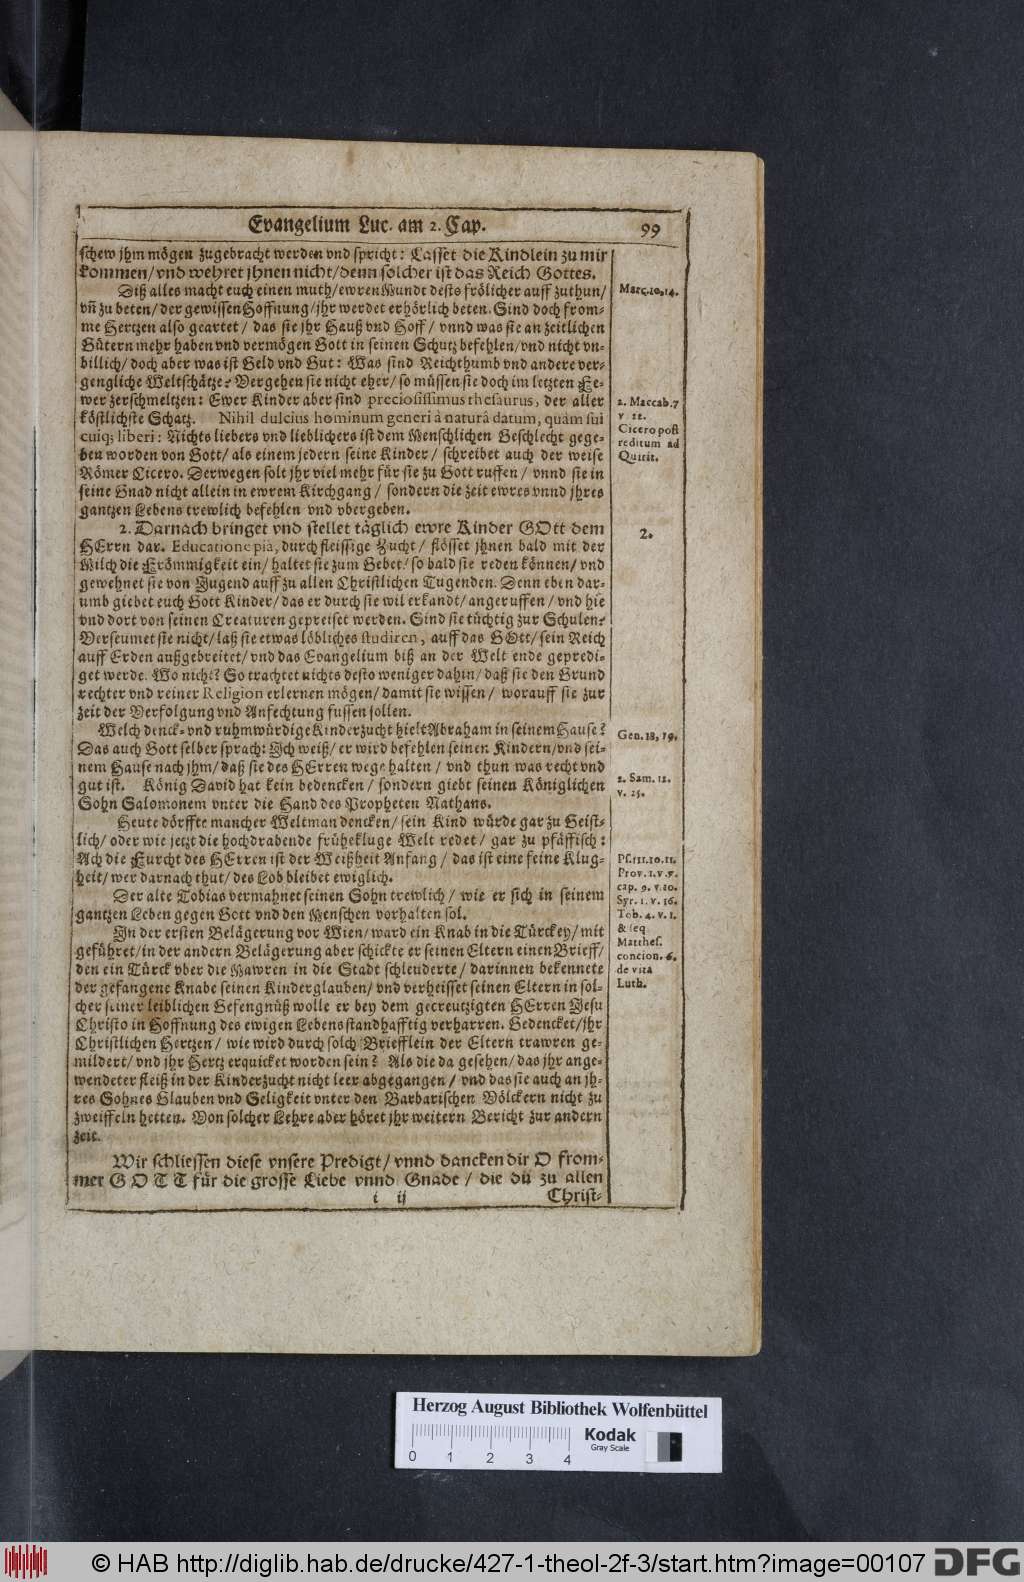 Evangelium Luc. am 2. Cap.
99
schew jhm mögen zugebracht werden vnd spricht: Lasset die Kindlein zu mir
kommen/ vnd wehret jhnen nicht/ denn solcher ist das Reich Gottes.
Marc. 10, 14.
Diß alles macht euch einen muth/ ewren Mundt desto frölicher auff zuthun/
vñ zu beten/ der gewissen Hoffnung/ jhr werdet erhörlich beten. Sind doch from-
me Hertzen also geartet/ das sie jhr Hauß vnd Hoff/ vnnd was sie an zeitlichen
Gütern mehr haben vnd vermögen Gott in seinen Schutz befehlen/ vnd nicht vn-
billich/ doch aber was ist Geld vnd Gut: Was sind Reichthumb vnd andere ver-
gengliche Weltschätze? Vergehen sie nicht eher/ so müssen sie doch im letzten Fe-
wer zerschmeltzen: Ewer Kinder aber sind preciosissimus thesaurus, der aller
köstlichste Schatz. Nihil dulcius hominum generi à naturâ datum, quàm sui
cuiq; liberi: Nichts liebers vnd lieblichers ist dem Menschlichen Geschlecht gege-
ben worden von Gott/ als einem jedern seine Kinder/ schreibet auch der weise
Römer Cicero. Derwegen solt jhr viel mehr für sie zu Gott ruffen/ vnnd sie in
seine Gnad nicht allein in ewrem Kirchgang/ sondern die zeit ewres vnnd jhres
gantzen Lebens trewlich befehlen vnd vbergeben.
2. Maccab. 7
v 22.
Cicero post
reditum ad
Quirit.
2. Darnach bringet vnd stellet täglich ewre Kinder GOtt dem
HErrn dar. Educatione piâ, durch fleissige Zucht/ flösset jhnen bald mit der
Milch die Frömmigkeit ein/ haltet sie zum Gebet/ so bald sie reden können/ vnd
gewehnet sie von Jugend auff zu allen Christlichen Tugenden. Denn eben dar-
umb giebet euch Gott Kinder/ das er durch sie wil erkandt/ angeruffen/ vnd hie
vnd dort von seinen Creaturen gepreiset werden. Sind sie tüchtig zur Schulen?
Verseumet sie nicht/ laß sie etwas löbliches studiren, auff das GOtt/ sein Reich
auff Erden außgebreitet/ vnd das Evangelium biß an der Welt ende gepredi-
get werde. Wo nicht? So trachtet nichts desto weniger dahin/ daß sie den Grund
rechter vnd reiner Religion erlernen mögen/ damit sie wissen/ worauff sie zur
zeit der Verfolgung vnd Anfechtung fussen sollen.
2.
Welch denck- vnd ruhmwürdige Kinderzucht hielt Abraham in seinem Hause?
Das auch Gott selber sprach: Ich weiß/ er wird befehlen seinen Kindern/ vnd sei-
nem Hause nach jhm/ daß sie des HErren wege halten/ vnd thun was recht vnd
gut ist. König David hat kein bedencken/ sondern giebt seinen Königlichen
Sohn Salomonem vnter die Hand des Propheten Nathans.
Gen. 18, 19.
2. Sam. 12.
v. 25.
Heute dörffte mancher Weltman dencken/ sein Kind würde gar zu Geist-
lich/ oder wie jetzt die hochdrabende frühekluge Welt redet/ gar zu pfäffisch:
Ach die Furcht des HErren ist der Weißheit Anfang/ das ist eine feine Klug-
heit/ wer darnach thut/ des Lob bleibet ewiglich.
Der alte Tobias vermahnet seinen Sohn trewlich/ wie er sich in seinem
gantzen Leben gegen Gott vnd den Menschen verhalten sol.
Ps. 111. 10. 11.
Prov. 1. v. 7.
cap. 9. v. 10.
Syr. 1. v. 16.
Tob. 4. v. 1.
& seq
Matthes.
concion. 6.
de vita
Luth.
In der ersten Belägerung vor Wien/ ward ein Knab in die Türckey/ mit
geführet/ in der andern Belägerung aber schickte er seinen Eltern einen Brieff/
den ein Türck vber die Mawren in die Stadt schleuderte/ darinnen bekennete
der gefangene Knabe seinen Kinderglauben/ vnd verheisset seinen Eltern in sol-
cher seiner leiblichen Gefengnüß wolle er bey dem gecreutzigten HErren Jesu
Christo in Hoffnung des ewigen Lebens standhafftig verharren. Gedencket/ jhr
Christlichen Hertzen/ wie wird durch solch Briefflein der Eltern trawren ge-
mildert/ vnd jhr Hertz erquicket worden sein? Als die da gesehen/ das jhr ange-
wendeter fleiß in der Kinderzucht nicht leer abgegangen/ vnd das sie auch an jh-
res Sohnes Glauben vnd Seligkeit vnter den Barbarischen Völckern nicht zu
zweiffeln hetten. Von solcher Lehre aber höret jhr weitern Bericht zur andern
zeit.
Wir schliessen diese vnsere Predigt/ vnnd dancken dir O from-
mer GOTT für die grosse Liebe vnnd Gnade/ die du zu allen
i ij
Christ-
Herzog August Bibliothek Wolfenbüttel
0 1 2 3 4
Kodak
Gray Scale
© HAB http://diglib.hab.de/drucke/427-1-theol-2f-3/start.htm?image=00107
DFG